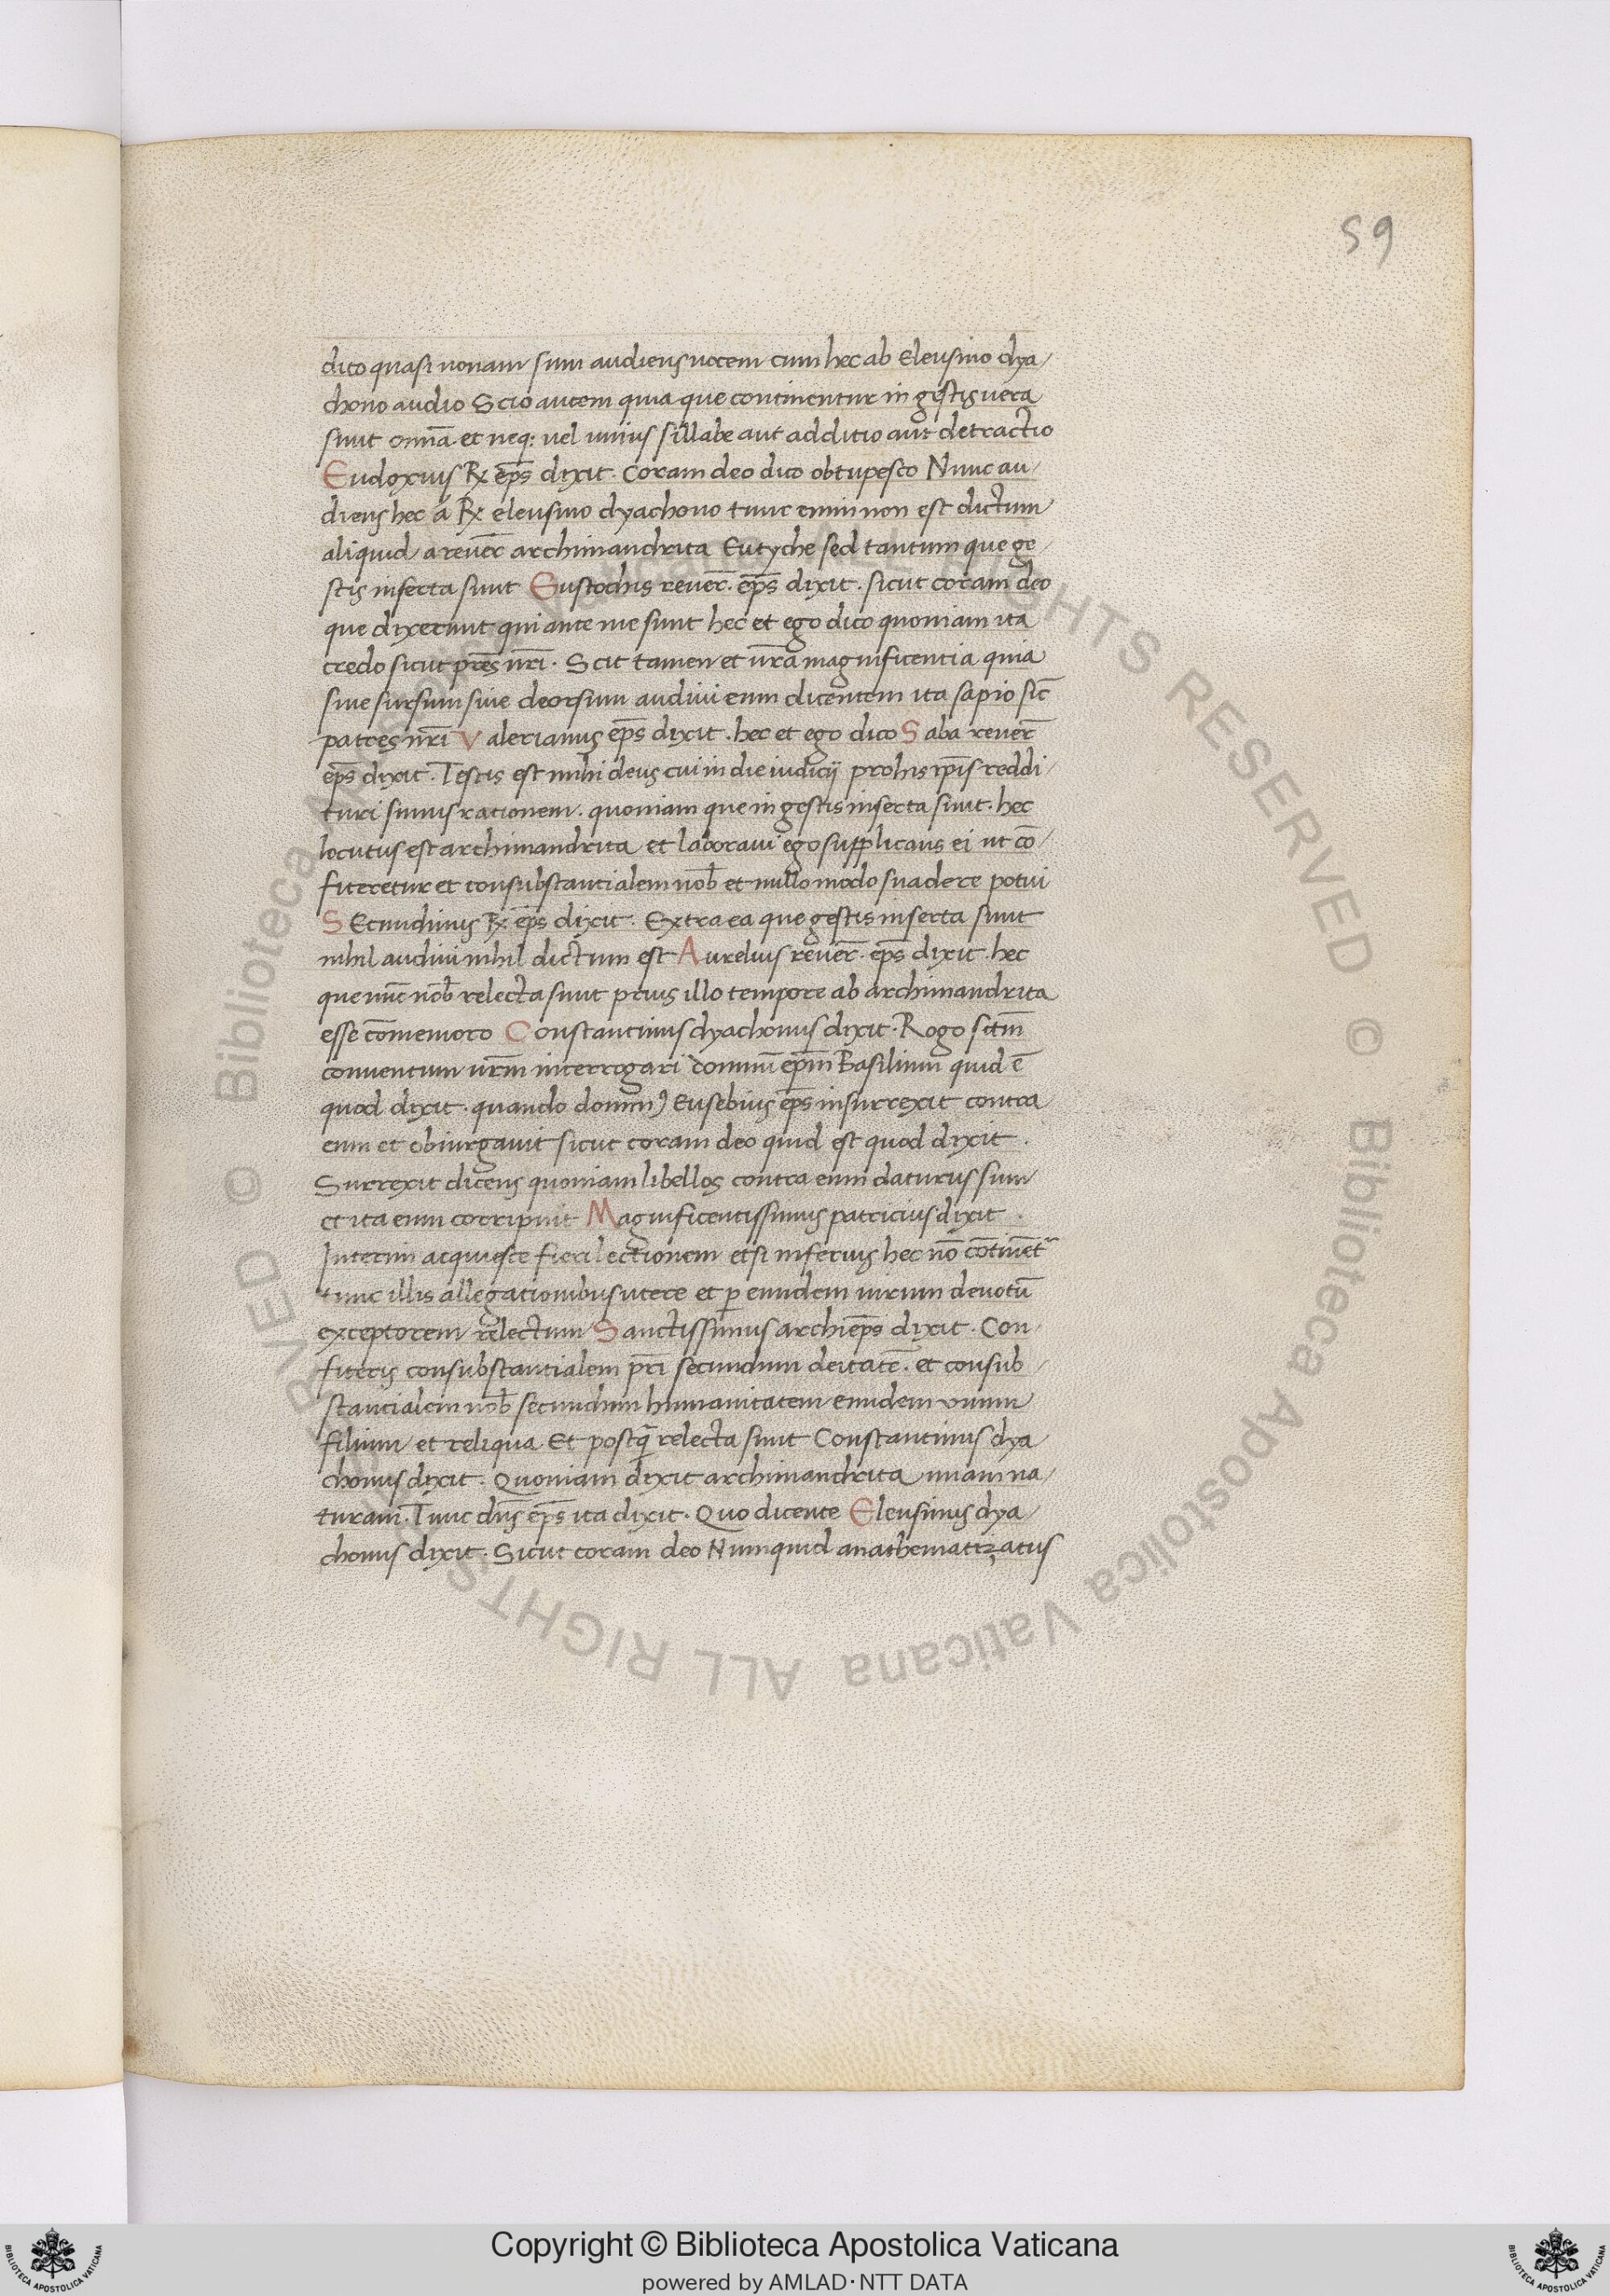 59
dico quasi nouam sum audiens uocem cum hec ab Eleusino dya/
chono audio Scio autem quia que continentur in gestis uera
sunt om̄ia et neq; uel unius sillabe aut additio aut detractio
Eudoxius R̷ ep̄s dixit. Coram deo dico obtupesco Nunc au/
diens hec a R̷ eleusino dyachono tunc enim non est dictum
aliquid a reuer̄ archimandrita Eutyche sed tantum que ge/
stis inserta sunt Eustochis reuer̄. ep̄s dixit. sicut coram deo
que dixerunt qui ante me sunt hec et ego dico quoniam ita
credo sicut pr̄es nr̄i. Scit tamen et ur̄a magnificentia quia
siue sursum siue deorsum audiui eum dicentem ita sapio sic̄
patres nr̄i Valerianus ep̄s dixit. hec et ego dico Saba reuer̄
ep̄s dixit. Testis est mihi deus cui in die iudicij pro his ip̄is reddi/
turi sumus rationem. quoniam que in gestis inserta sunt. hec
locutus est archimandrita et laboraui ego supplicans ei ut cō/
fiteretur et consubstantialem nob̄ et nullo modo suadere potui
SEcundinus R̷ ep̄s dixit. Extra ea que gestis inserta sunt
nihil audiui nihil dictum est Aurelius reuer̄. ep̄s dixit. hec
que nūc nob̄ relecta sunt prius illo tempore ab archimandrita
esse cōmemoro Constantinus dyachonus dixit. Rogo sctm̄
conuentum ur̄m interrogari domnū ep̄m Basilium quid ē
quod dixit. quando domn⁹ Eusebius ep̄s insurrexit contra
eum et obiurgauit sicut coram deo quid est quod dixit.
Surrexit dicens quoniam libellos contra eum daturus sum
et ita eum corripuit Magnificentissimus patricius dixit.
Interim acquiesce fieri lectionem etsi inferius hec nō cōtinēt᷑
tunc illis allegationibus utere et p̱ eundem uirum deuotū
exceptorem relectum Sanctissimus archiep̄s dixit. Con/
fiteris consubstantialem pr̄i secundum deitatē. et consub/
stantialem nob̄ secundum humanitatem eundem unum
filium et reliqua Et postq̄ relecta sunt Constantinus dya
chonus dixit. Quoniam dixit archimandrita unam na/
turam. Tunc dn̄s ep̄s ita dixit. Quo dicente Eleusinus dya/
chonus dixit. Sicut coram deo Numquid anathematizatus
© Biblioteca Apostolica Vaticana ALL RIGHTS RESERVED © Biblioteca Apostolica Vaticana ALL RIGHTS RESERVED
Copyright © Biblioteca Apostolica Vaticana
powered by AMLAD·NTT DATA
BIBLIOTECA APOSTOLICA VATICANA
BIBLIOTECA APOSTOLICA VATICANA